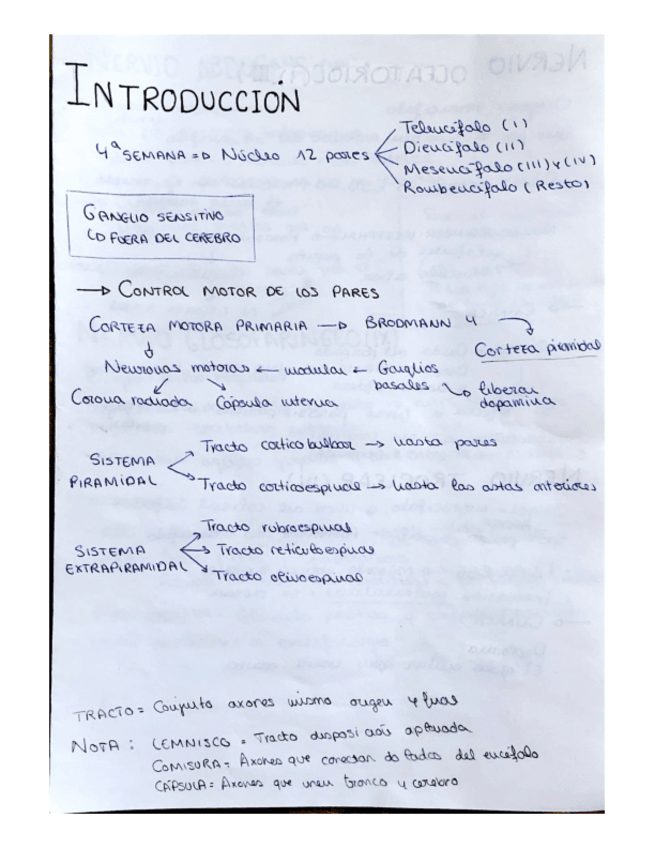 INTRODUCCIÓN
4ª SEMANA => Núcleo 12 pares
Telencéfalo (I)
Diencéfalo (II)
Mesencéfalo (III) y (IV)
Rombencéfalo (Resto)
GANGLIO SENSITIVO
↳ FUERA DEL CEREBRO
→ CONTROL MOTOR DE LOS PARES
CORTEZA MOTORA PRIMARIA → BRODMANN 4
Corteza piramidal
Neuronas motoras ← modular ← Ganglios basales
↳ liberan dopamina
Corona radiada Cápsula interna
SISTEMA PIRAMIDAL
Tracto corticobulbar → hasta pares
Tracto corticoespinal → hasta las astas anteriores
SISTEMA EXTRAPIRAMIDAL
Tracto rubroespinal
Tracto reticuloespinal
Tracto olivoespinal
TRACTO = Conjunto axones mismo origen y
NOTA: LEMNISCO = Tracto disposición aplanada
COMISURA = Axones que conectan do lados del encéfalo
CÁPSULA = Axones que unen tronco y cerebro